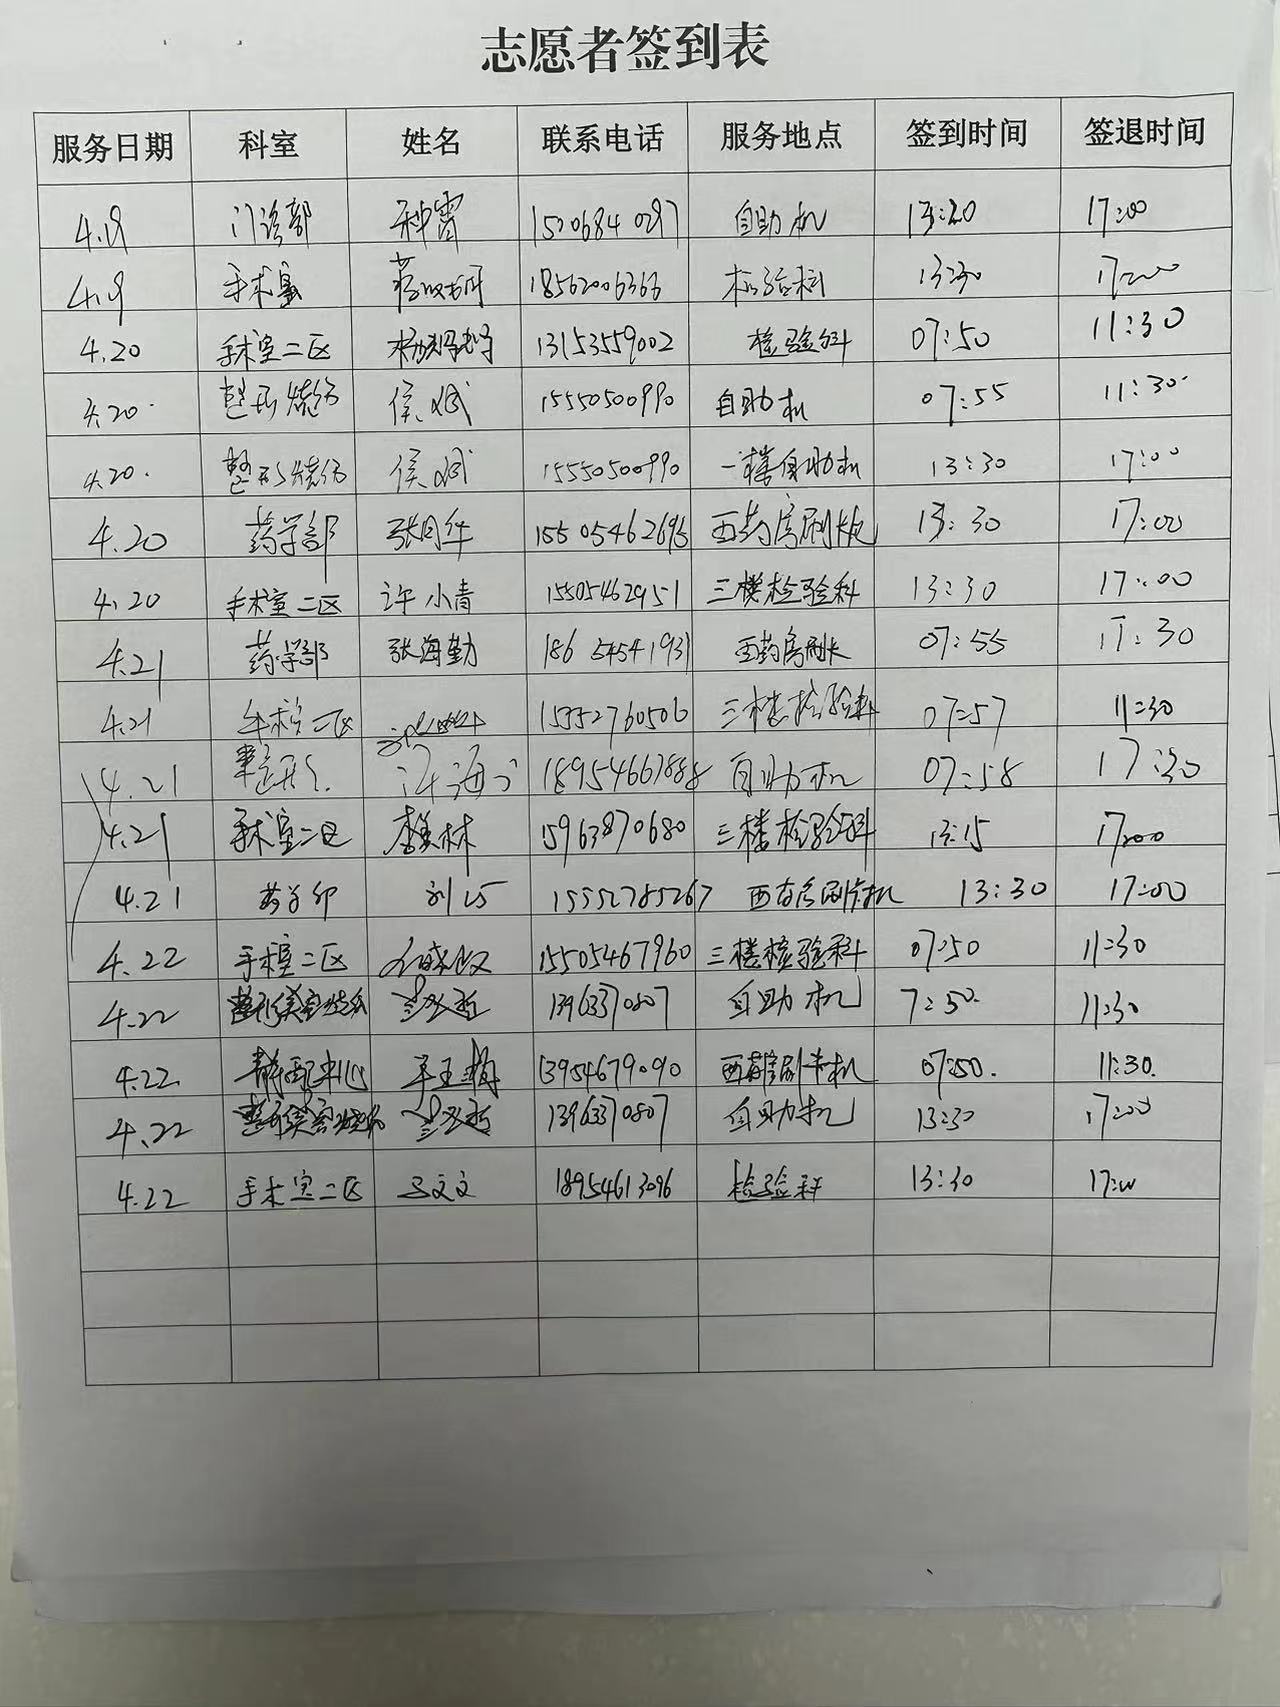 志愿者签到表
服务日期 科室 姓名 联系电话 服务地点 签到时间 签退时间
4.19 门诊部 种霄 自助机 13:20 17:00
4.19 手术室 18562006366 检验科 13:30 17:00
4.20 手术室二区 13153559002 检验科 07:50 11:30
4.20 整形烧伤 侯斌 15550500990 自助机 07:55 11:30
4.20 整形烧伤 侯斌 15550500990 一楼自助机 13:30 17:00
4.20 药学部 15505462696 西药房刷卡 13:30 17:00
4.20 手术室二区 许小青 15505462951 三楼检验科 13:30 17:00
4.21 药学部 张海勤 18654541931 西药房刷卡 07:55 17:30
4.21 手术室二区 15352760506 三楼检验科 07:57 11:30
4.21 整形 自助机 07:58 17:30
4.21 手术室二区 李美林 15963870680 三楼检验科 13:15 17:00
4.21 药学部 15552785267 西药房刷卡机 13:30 17:00
4.22 手术室二区 15505467960 三楼检验科 07:50 11:30
4.22 13963370807 自助机 7:50 11:30
4.22 静配中心 13954679090 西药房刷卡机 07:50 11:30
4.22 13963370807 自助机 13:30 17:00
4.22 手术室二区 18954613096 检验科 13:30 17:00